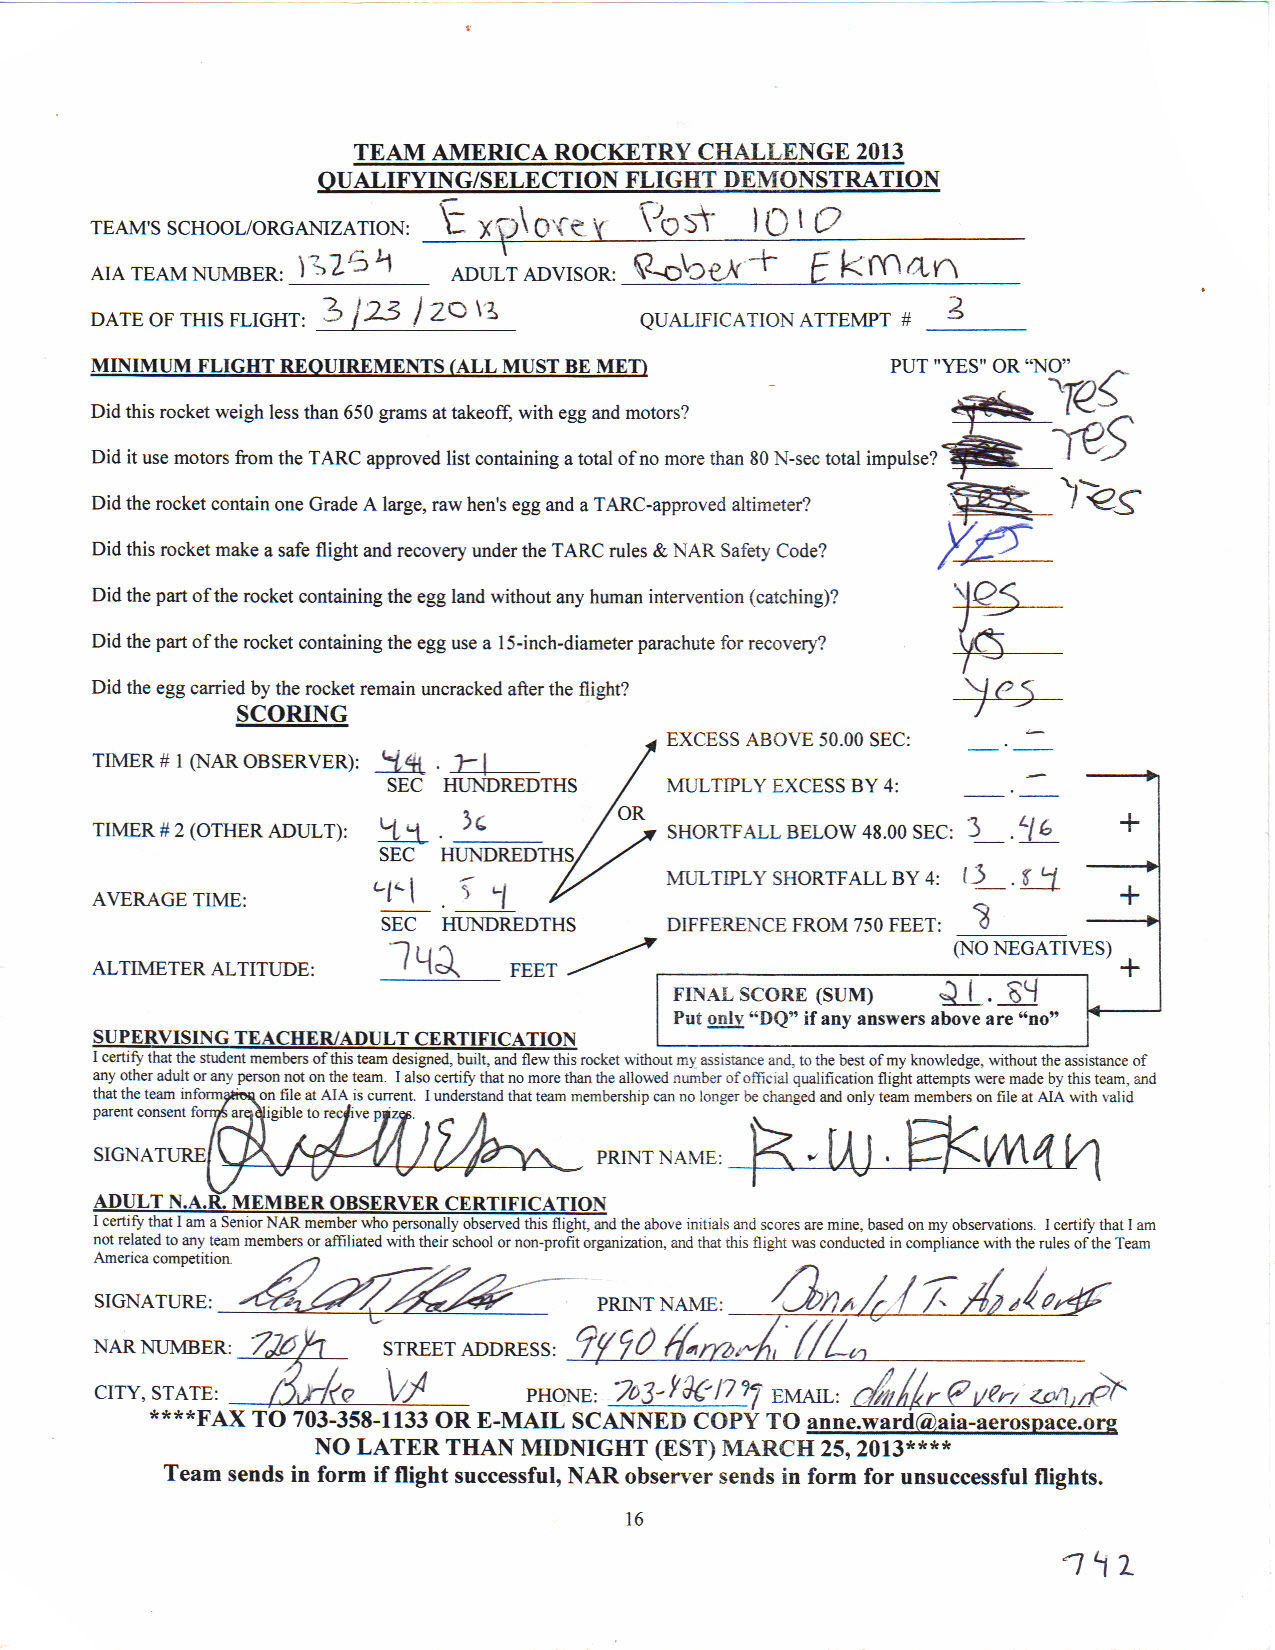 TEAM AMERICA ROCKETRY CHALLENGE 2013
QUALIFYING/SELECTION FLIGHT DEMONSTRATION
TEAM'S SCHOOL/ORGANIZATION: Explorer Post 1010
AIA TEAM NUMBER: 13254 ADULT ADVISOR: Robert Ekman
DATE OF THIS FLIGHT: 3/23/2013 QUALIFICATION ATTEMPT # 3
MINIMUM FLIGHT REQUIREMENTS (ALL MUST BE MET) PUT "YES" OR “NO”
Did this rocket weigh less than 650 grams at takeoff, with egg and motors? Yes
Did it use motors from the TARC approved list containing a total of no more than 80 N-sec total impulse? Yes
Did the rocket contain one Grade A large, raw hen's egg and a TARC-approved altimeter? Yes
Did this rocket make a safe flight and recovery under the TARC rules & NAR Safety Code? YES
Did the part of the rocket containing the egg land without any human intervention (catching)? yes
Did the part of the rocket containing the egg use a 15-inch-diameter parachute for recovery? yes
Did the egg carried by the rocket remain uncracked after the flight? yes
SCORING
EXCESS ABOVE 50.00 SEC: . -
TIMER # 1 (NAR OBSERVER): 44 . 71
SEC HUNDREDTHS
MULTIPLY EXCESS BY 4: . -
OR
TIMER # 2 (OTHER ADULT): 44 . 36
SEC HUNDREDTHS
SHORTFALL BELOW 48.00 SEC: 3 .46
+
MULTIPLY SHORTFALL BY 4: 13 .84
+
AVERAGE TIME: 44 . 54
SEC HUNDREDTHS
DIFFERENCE FROM 750 FEET: 8
(NO NEGATIVES)
+
ALTIMETER ALTITUDE: 742 FEET
FINAL SCORE (SUM) 21.84
Put only “DQ” if any answers above are “no”
SUPERVISING TEACHER/ADULT CERTIFICATION
I certify that the student members of this team designed, built, and flew this rocket without my assistance and, to the best of my knowledge, without the assistance of
any other adult or any person not on the team. I also certify that no more than the allowed number of official qualification flight attempts were made by this team, and
that the team information on file at AIA is current. I understand that team membership can no longer be changed and only team members on file at AIA with valid
parent consent forms are eligible to receive prizes.
SIGNATURE PRINT NAME: R.W. Ekman
ADULT N.A.R. MEMBER OBSERVER CERTIFICATION
I certify that I am a Senior NAR member who personally observed this flight, and the above initials and scores are mine, based on my observations. I certify that I am
not related to any team members or affiliated with their school or non-profit organization, and that this flight was conducted in compliance with the rules of the Team
America competition.
SIGNATURE: PRINT NAME: Donald T.
NAR NUMBER: STREET ADDRESS: 9490 Ln
CITY, STATE: Burke VA PHONE: 703-426-1799 EMAIL: dmhkr@verizon.net
****FAX TO 703-358-1133 OR E-MAIL SCANNED COPY TO anne.ward@aia-aerospace.org
NO LATER THAN MIDNIGHT (EST) MARCH 25, 2013****
Team sends in form if flight successful, NAR observer sends in form for unsuccessful flights.
16
742